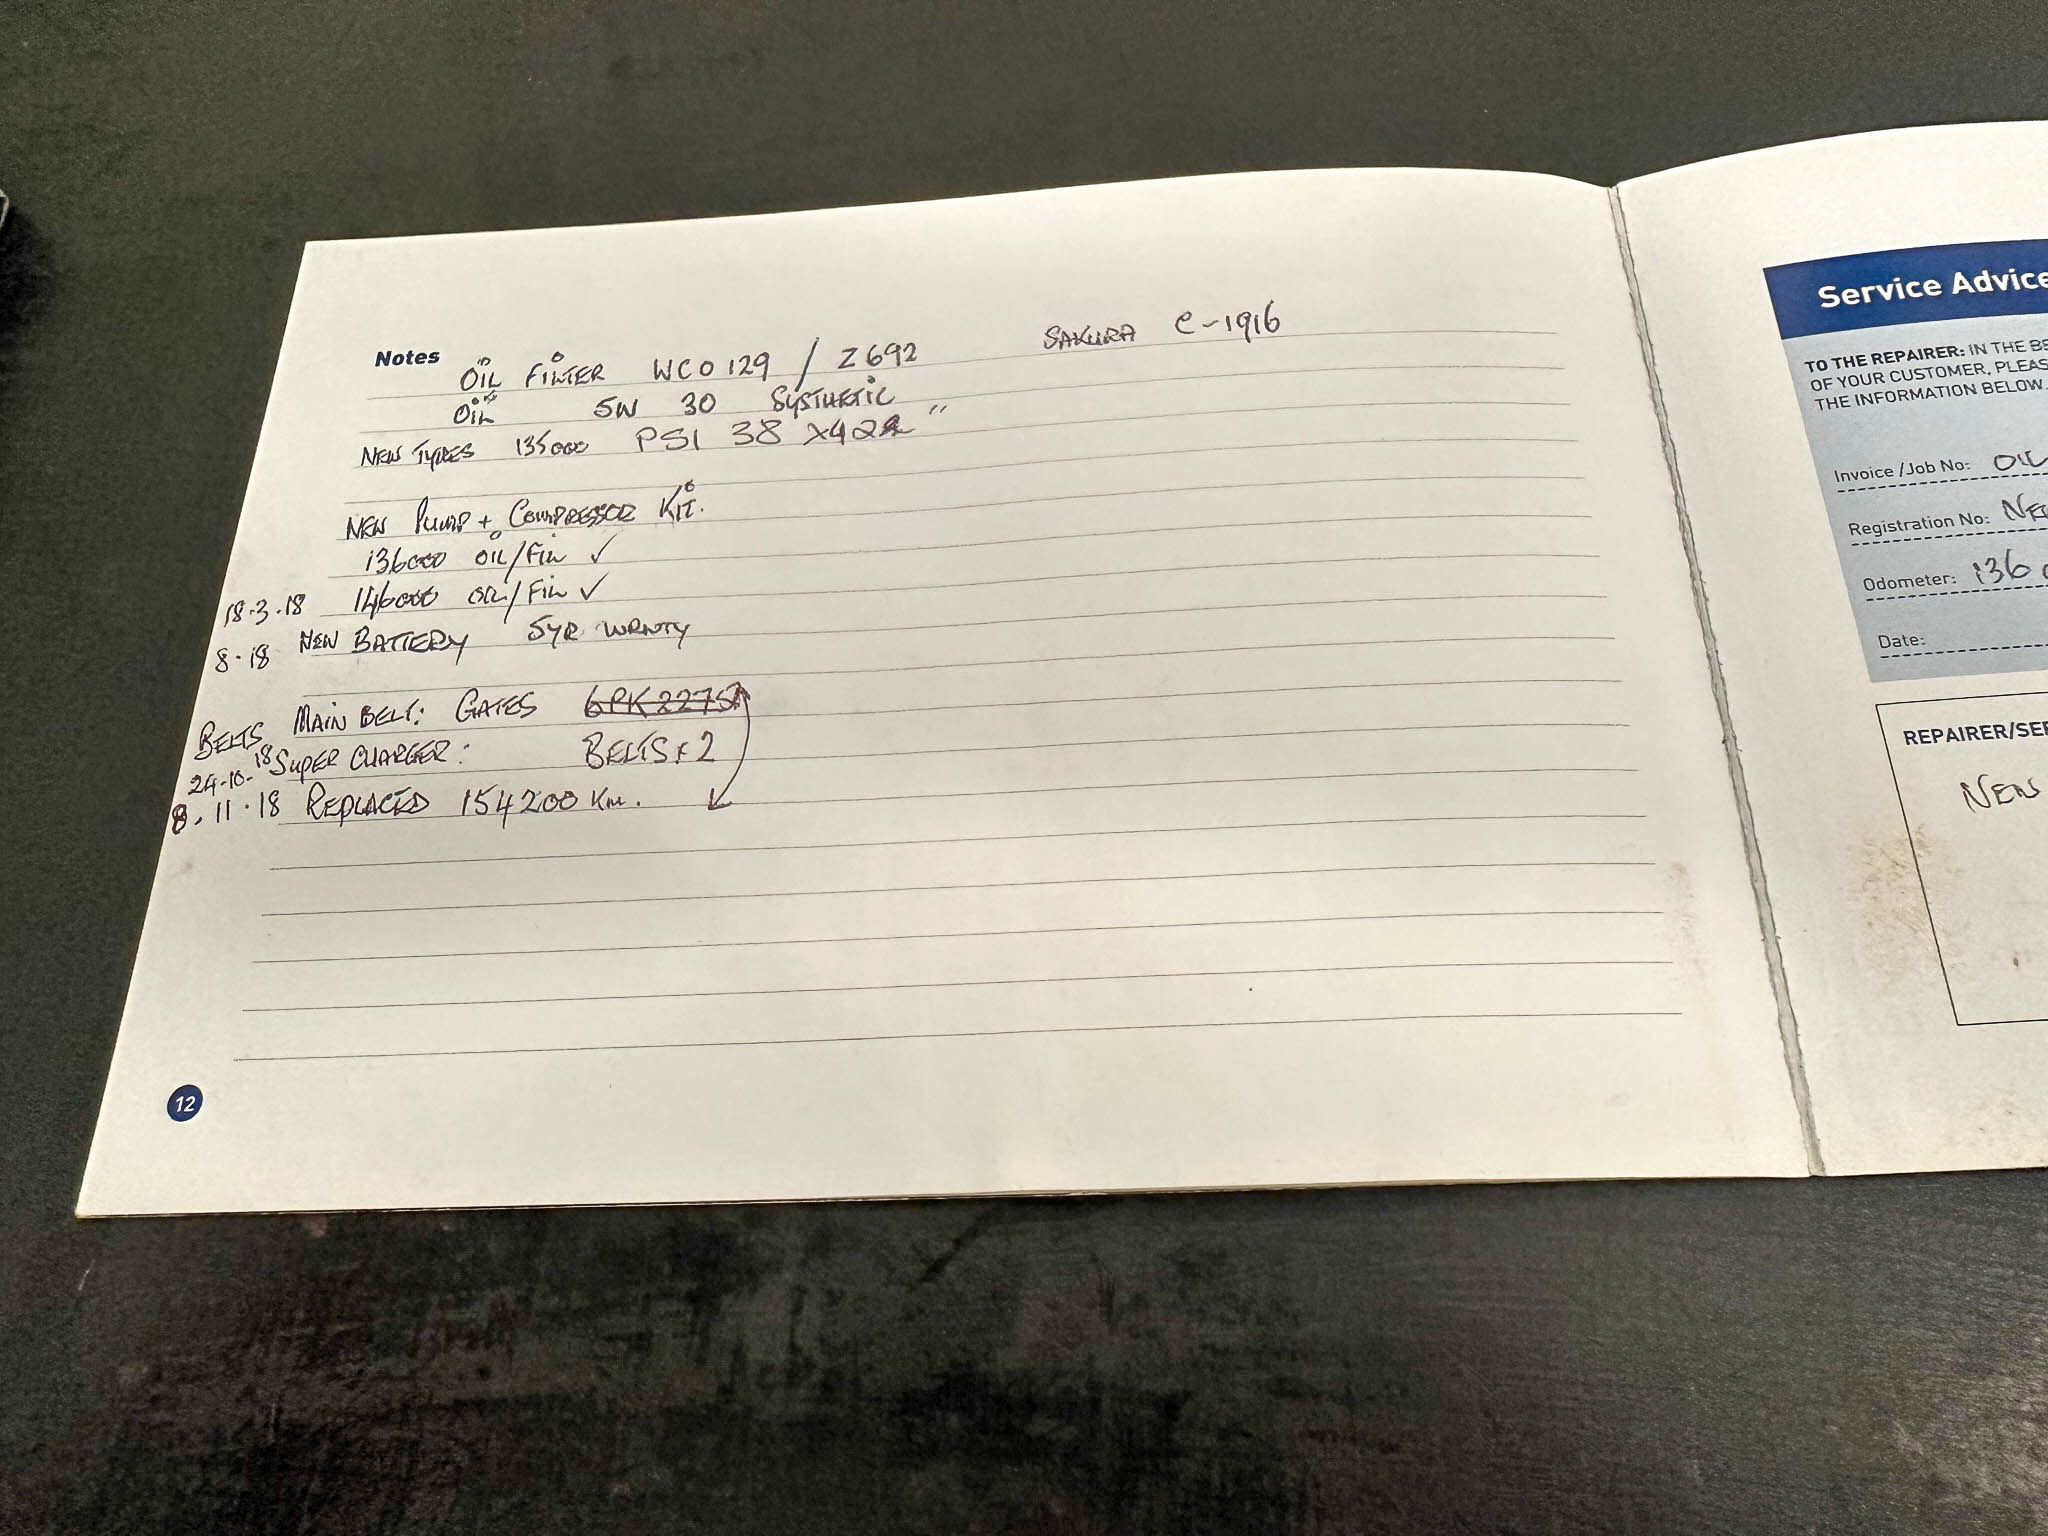 Notes
OIL FILTER WCO 129 / Z692 SAKURA C-1916
OIL 5W 30 SYSTHETIC
NEW TYRES 135000 PSI 38 "
NEW PUMP + COMPRESSOR KIT.
136000 OIL/FIL ✓
18.3.18 146000 OIL/FIL ✓
8.18 NEW BATTERY 5YR WRNTY
BELTS MAIN BELT: GATES 6PK2275
24-10-18 SUPER CHARGER: BELTS x 2
8.11.18 REPLACED 154200 Km.
12
Service Advice
TO THE REPAIRER: IN THE BE
OF YOUR CUSTOMER, PLEAS
THE INFORMATION BELOW.
Invoice /Job No: OIL
Registration No: NEW
Odometer: 136
Date:
REPAIRER/SER
NEW